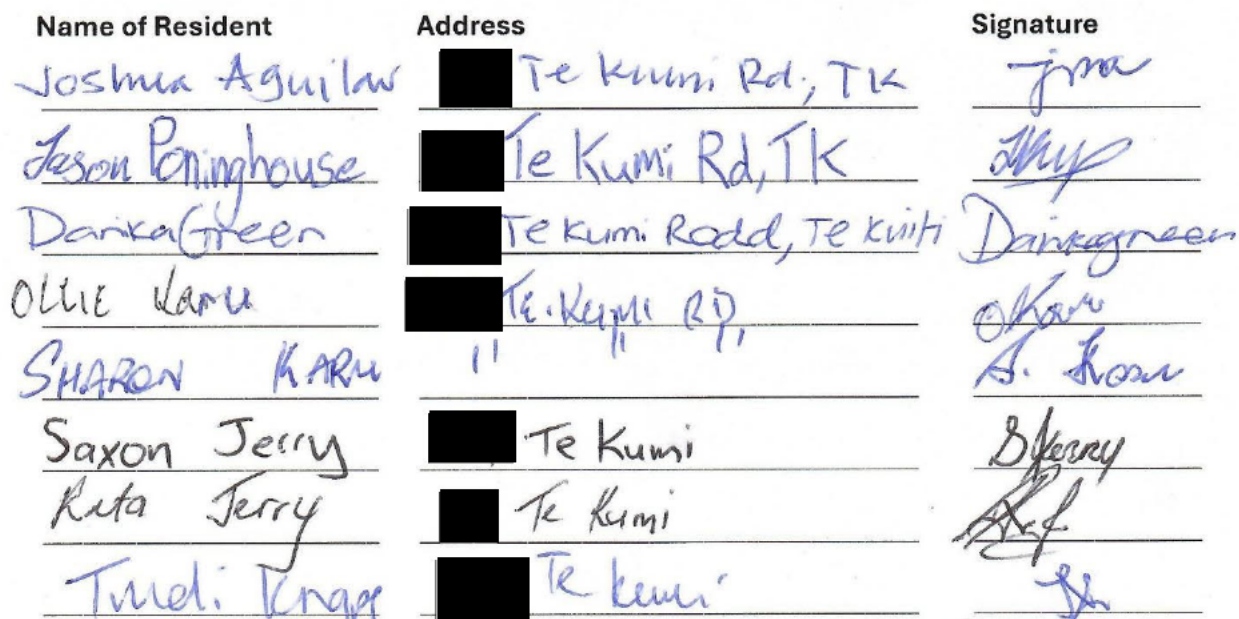 Name of Resident Address Signature
Joshua Aguilar Te Kumi Rd, TK jma
Jason Poninghouse Te Kumi Rd, TK
Danika Green Te Kumi Rodd, Te Kuiti Danikagreen
OLLIE Karu Te. Kumi RD, OKaru
SHARON KARU " " " S. Karu
Saxon Jerry Te Kumi SJerry
Rita Jerry Te Kumi
Trudi Te Kumi